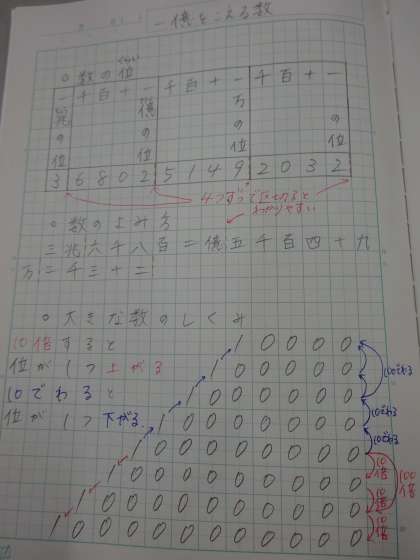 一億をこえる数
○数の位
一千百十一千百十一千百十一
兆 億 万
の の の の
位 位 位 位
3680251492032
4つずつで区切ると
わかりやすい
○数のよみ方
三兆六千八百二億五千百四十九
万二千三十二
○大きな数のしくみ
10倍すると
位が1つ上がる
10でわると
位が1つ下がる
10000
100000
1000000
10000000
100000000
1000000000
10000000000
100000000000
10でわる
10でわる
10でわる
10倍
10倍
10倍
100倍